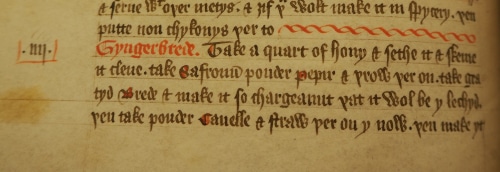 & serue it ouer metys. & yif y wolt make it in spycery. yen
putte non chykonys yer to
.iiij. Gyngerbrede. Take a quart of hony & sethe it & skeme
it clene. take Safroun pouder Pepir & yrow yer on. take gra
tyd Brede & make it so chargeaunt yat it wol be y lechyd.
yen take pouder Canelle & straw yer on y now. yen make yt